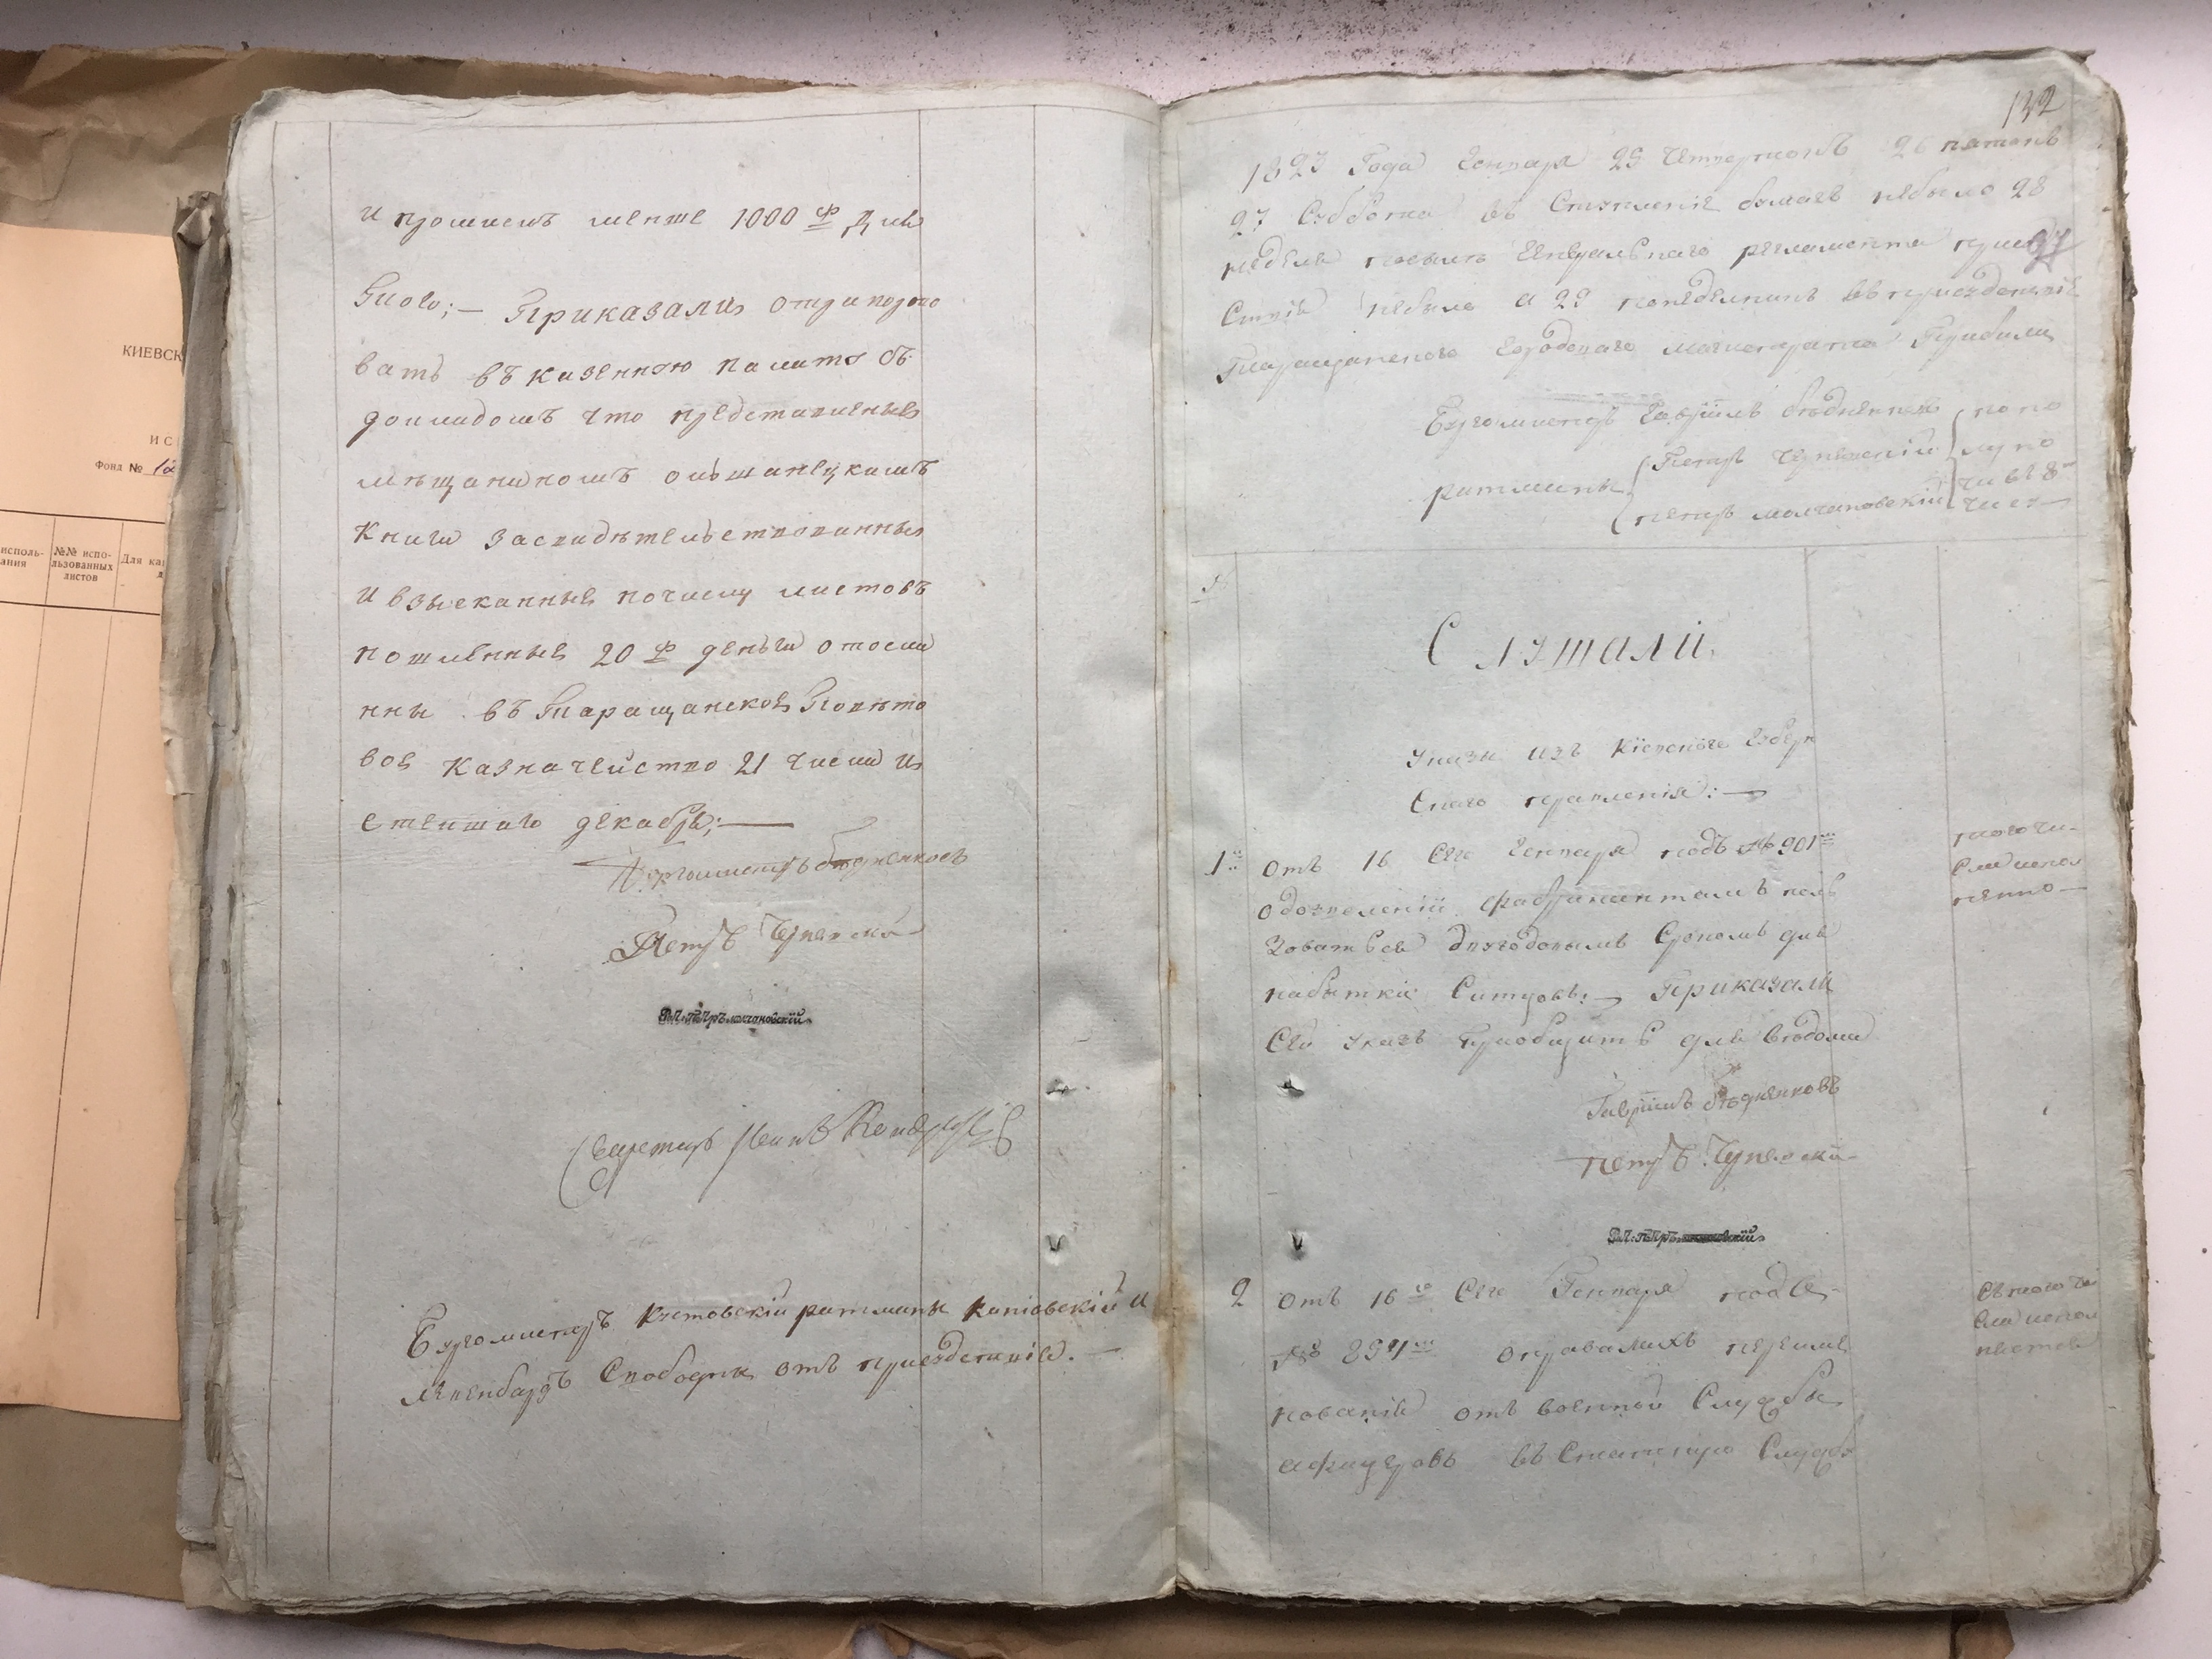 КИЕВСК
ИС
Фонд № 12
исполь-
ания
№№ испо-
льзованных
листов
Для ка
и промыслъ менше 1000 р для
Приказали отрапорто
вать въ казенною палату съ
докладомъ что представленные
мѣщаниномъ ольшанецкимъ
книги засвидѣтельствованные
и взысканные по числу листовъ
пошленные 20 р деньги отосла
нны въ Таращанское Повѣто
вое казначейство 21 числа и
стекшаго декабря;—
Бургомистръ Бѣдненковъ
Петръ Чернявскій
Рат. Петръ молчановскій
Секретарь
Бургомистръ Кустовскій ратманы Каніовскій и
Свободны от присудствія.—
132
1823 Года Генваря 25 Четвертокъ 26 пятокъ
27 Суббота въ Ступленіе бумагъ небыло 28
неделя посылѣ Генеральнаго регламента прису
97
Ствіе небыло а 29 понеделникъ въ присудствіе
Таращанскаго Городоваго магистрата Прибыли
Бургомистръ Гавріилъ бѣдненковъ
ратманы Петръ Чернявскій
петръ молчановскій
по по
лу но
чи въ 8
час
№
Слушали
Указы изъ Кіевскаго Губерн
Скаго правленія:—
1 Отъ 16 Сего Генваря подъ № 901
о дозволеніи фабрикантамъ поль
зоватьея двугодовымъ Срокомъ для
набытки Ситцовъ:— Приказали
Сей Указъ Приобщить для вѣдома
того чи-
сла испол
ненно—
Гавріилъ бѣдненковъ
Петръ Чернявскій
Рат. Петръ молчановскій
2 Отъ 16го Сего Генваря подъ
№ 894 о правилахъ переиме
нованія отъ военной Службы
афицеровъ въ Статскую Службу
Съ того чи
сла испол